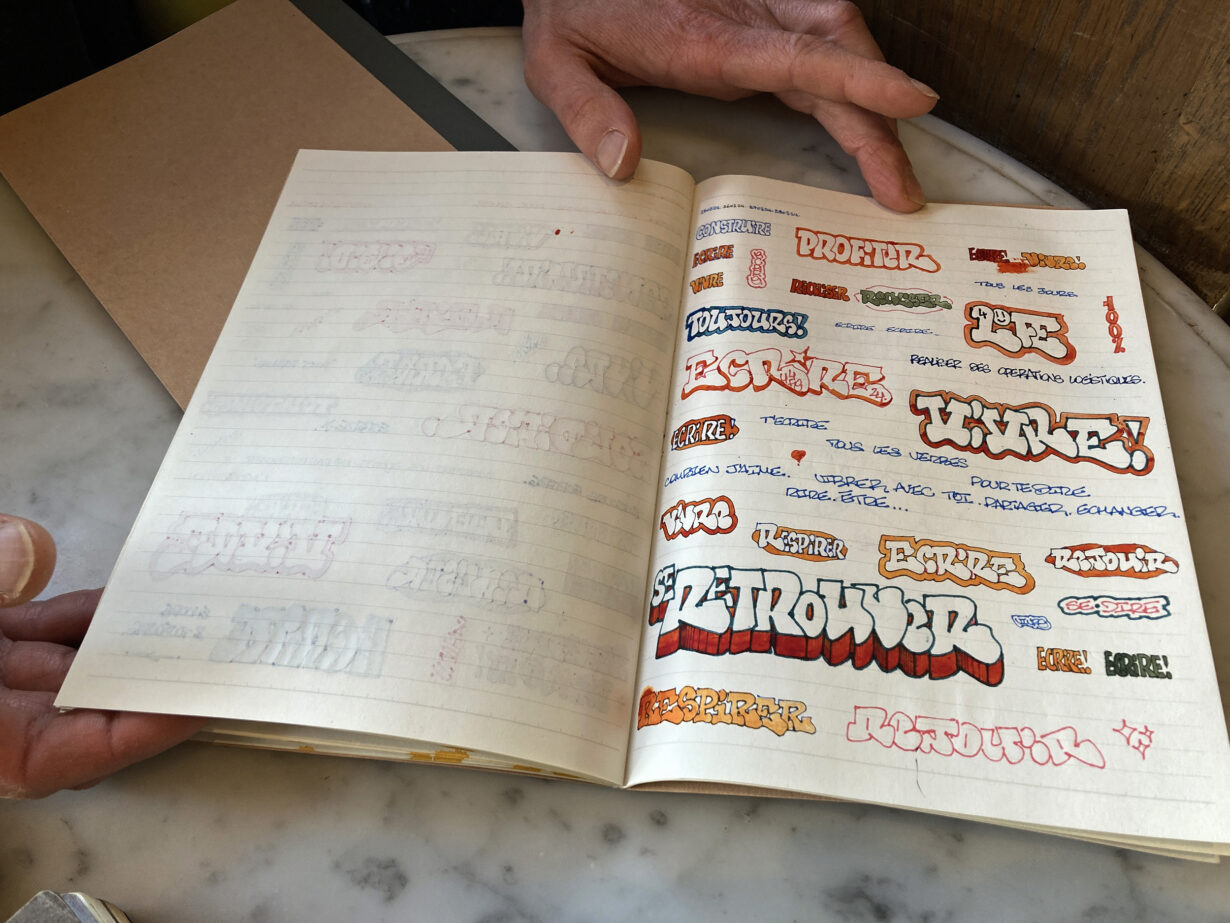 CONSTRUIRE
PROFITER
ECRIRE
ECRIRE! VIVRE!
VIVRE
TOUS LES JOURS
REALISER REALISER
100%
TOUJOURS!
ECRIRE ECRIRE.
LIFE
ECRIRE
REALISER DES OPERATIONS LOGISTIQUES.
VIVRE!
ECRIRE!
T'ECRIRE
TOUS LES VERBES
COMBIEN J'AIME.
POUR TE DIRE
VIBRER AVEC TOI. PARTAGER. ECHANGER.
RIRE. ÊTRE...
VIVRE
RESPIRER
ECRIRE
REJOUIR
SE RETROUVER
SE DIRE
VIVRE
ECRIRE! ECRIRE!
RESPIRER
REJOUIR